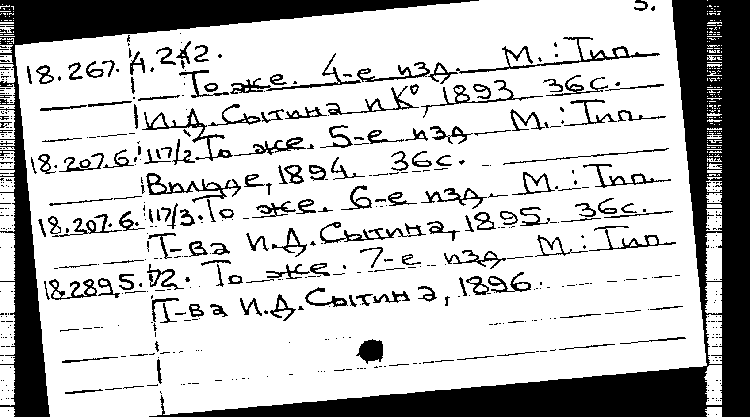 3.
18.267.4.242.
То же. 4-е изд. М.: Тип.
И.Д.Сытина и К°, 1893. 36с.
18.207.6.117/2. То же. 5-е изд. М.: Тип.
Вильде, 1894. 36с.
18.207.6.117/3. То же. 6-е изд. М.: Тип.
Т-ва И.Д.Сытина, 1895. 36с.
18.289.5.72. То же. 7-е изд. М.: Тип
Т-ва И.Д.Сытина, 1896.